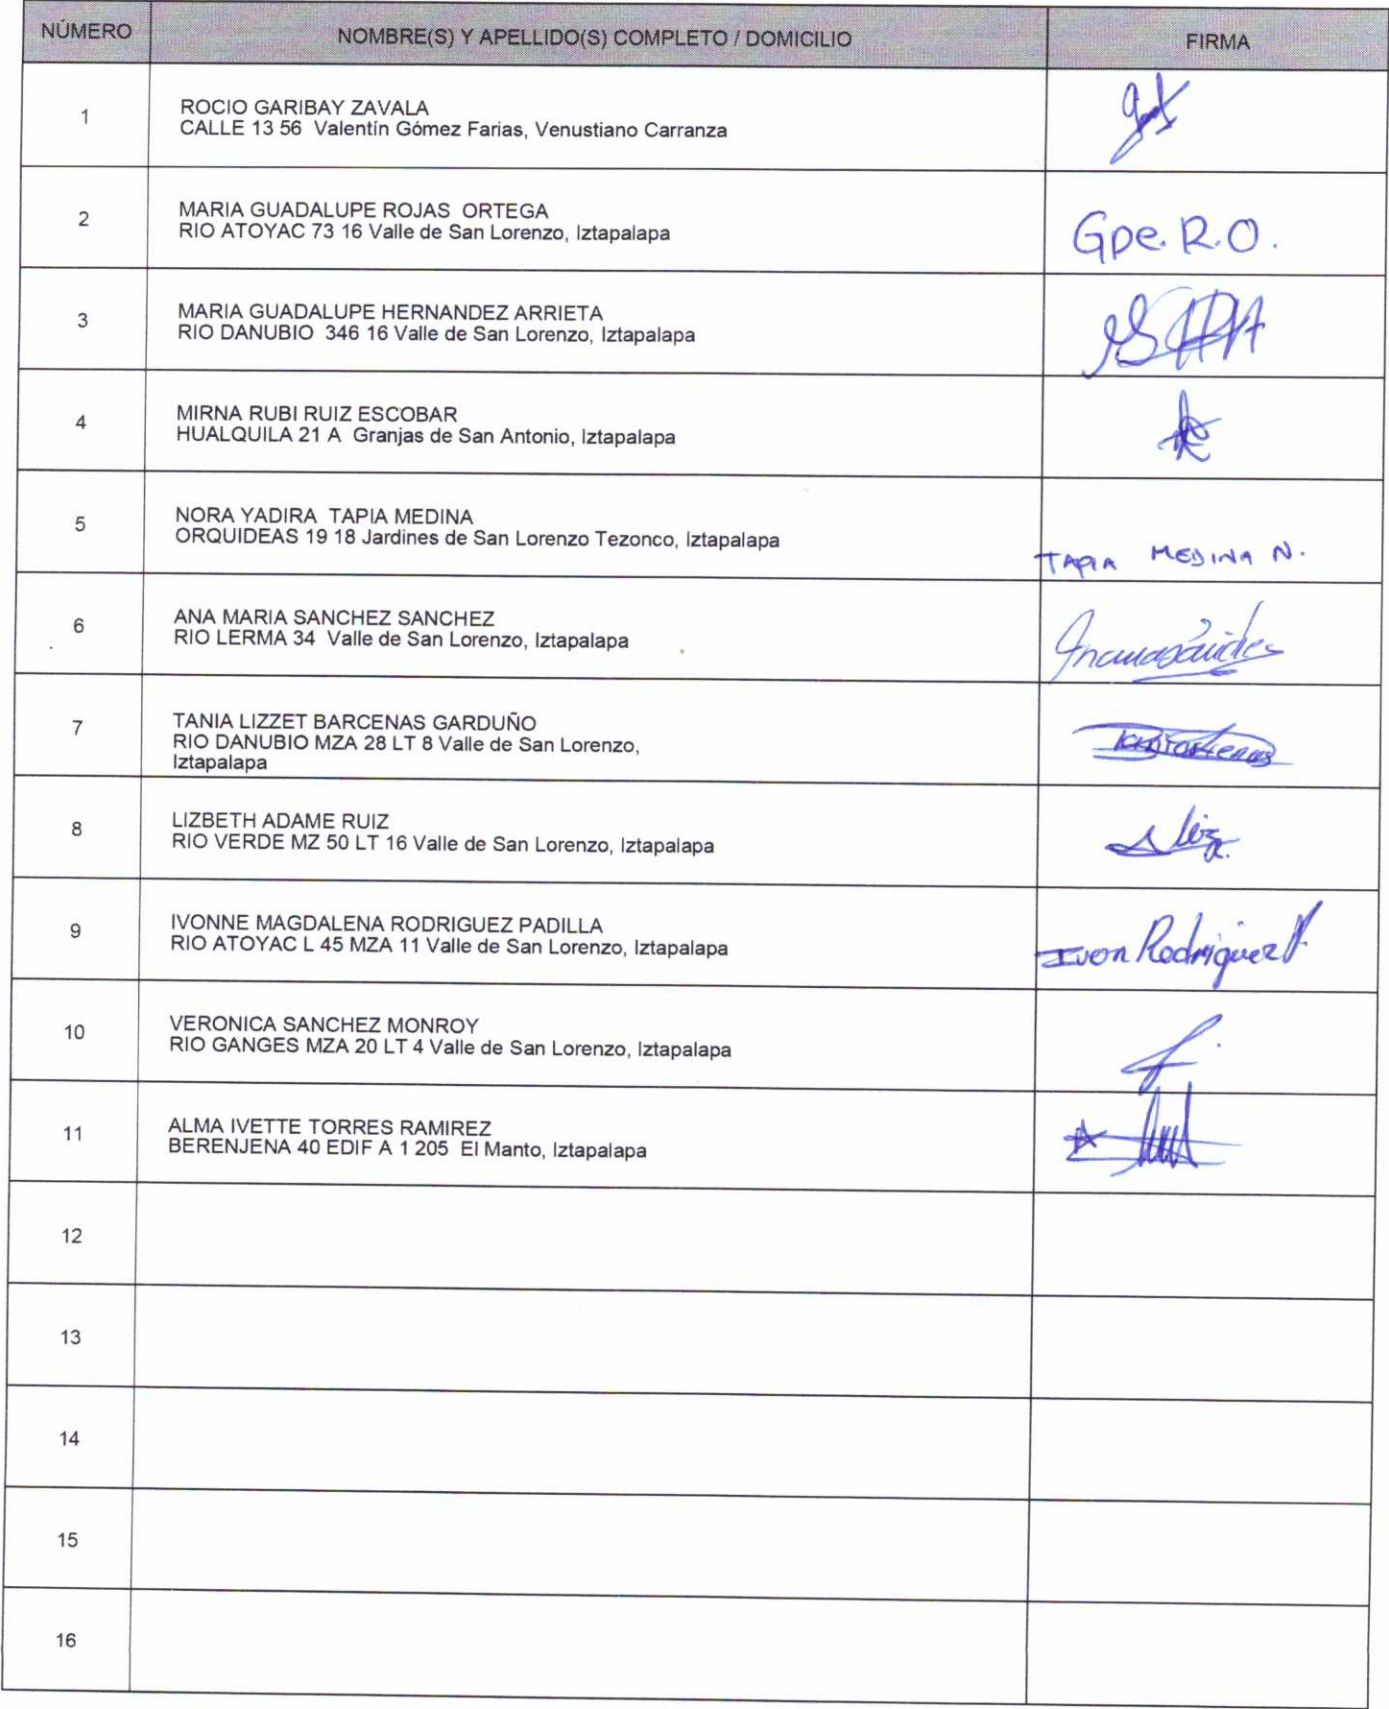 NÚMERO NOMBRE(S) Y APELLIDO(S) COMPLETO / DOMICILIO FIRMA
1 ROCIO GARIBAY ZAVALA
CALLE 13 56 Valentín Gómez Farias, Venustiano Carranza
2 MARIA GUADALUPE ROJAS ORTEGA
RIO ATOYAC 73 16 Valle de San Lorenzo, Iztapalapa
Gpe. R.O.
3 MARIA GUADALUPE HERNANDEZ ARRIETA
RIO DANUBIO 346 16 Valle de San Lorenzo, Iztapalapa
4 MIRNA RUBI RUIZ ESCOBAR
HUALQUILA 21 A Granjas de San Antonio, Iztapalapa
5 NORA YADIRA TAPIA MEDINA
ORQUIDEAS 19 18 Jardines de San Lorenzo Tezonco, Iztapalapa
TAPIA MEDINA N.
6 ANA MARIA SANCHEZ SANCHEZ
RIO LERMA 34 Valle de San Lorenzo, Iztapalapa
7 TANIA LIZZET BARCENAS GARDUÑO
RIO DANUBIO MZA 28 LT 8 Valle de San Lorenzo,
Iztapalapa
8 LIZBETH ADAME RUIZ
RIO VERDE MZ 50 LT 16 Valle de San Lorenzo, Iztapalapa
9 IVONNE MAGDALENA RODRIGUEZ PADILLA
RIO ATOYAC L 45 MZA 11 Valle de San Lorenzo, Iztapalapa
Ivon Rodriguez P.
10 VERONICA SANCHEZ MONROY
RIO GANGES MZA 20 LT 4 Valle de San Lorenzo, Iztapalapa
11 ALMA IVETTE TORRES RAMIREZ
BERENJENA 40 EDIF A 1 205 El Manto, Iztapalapa
12
13
14
15
16